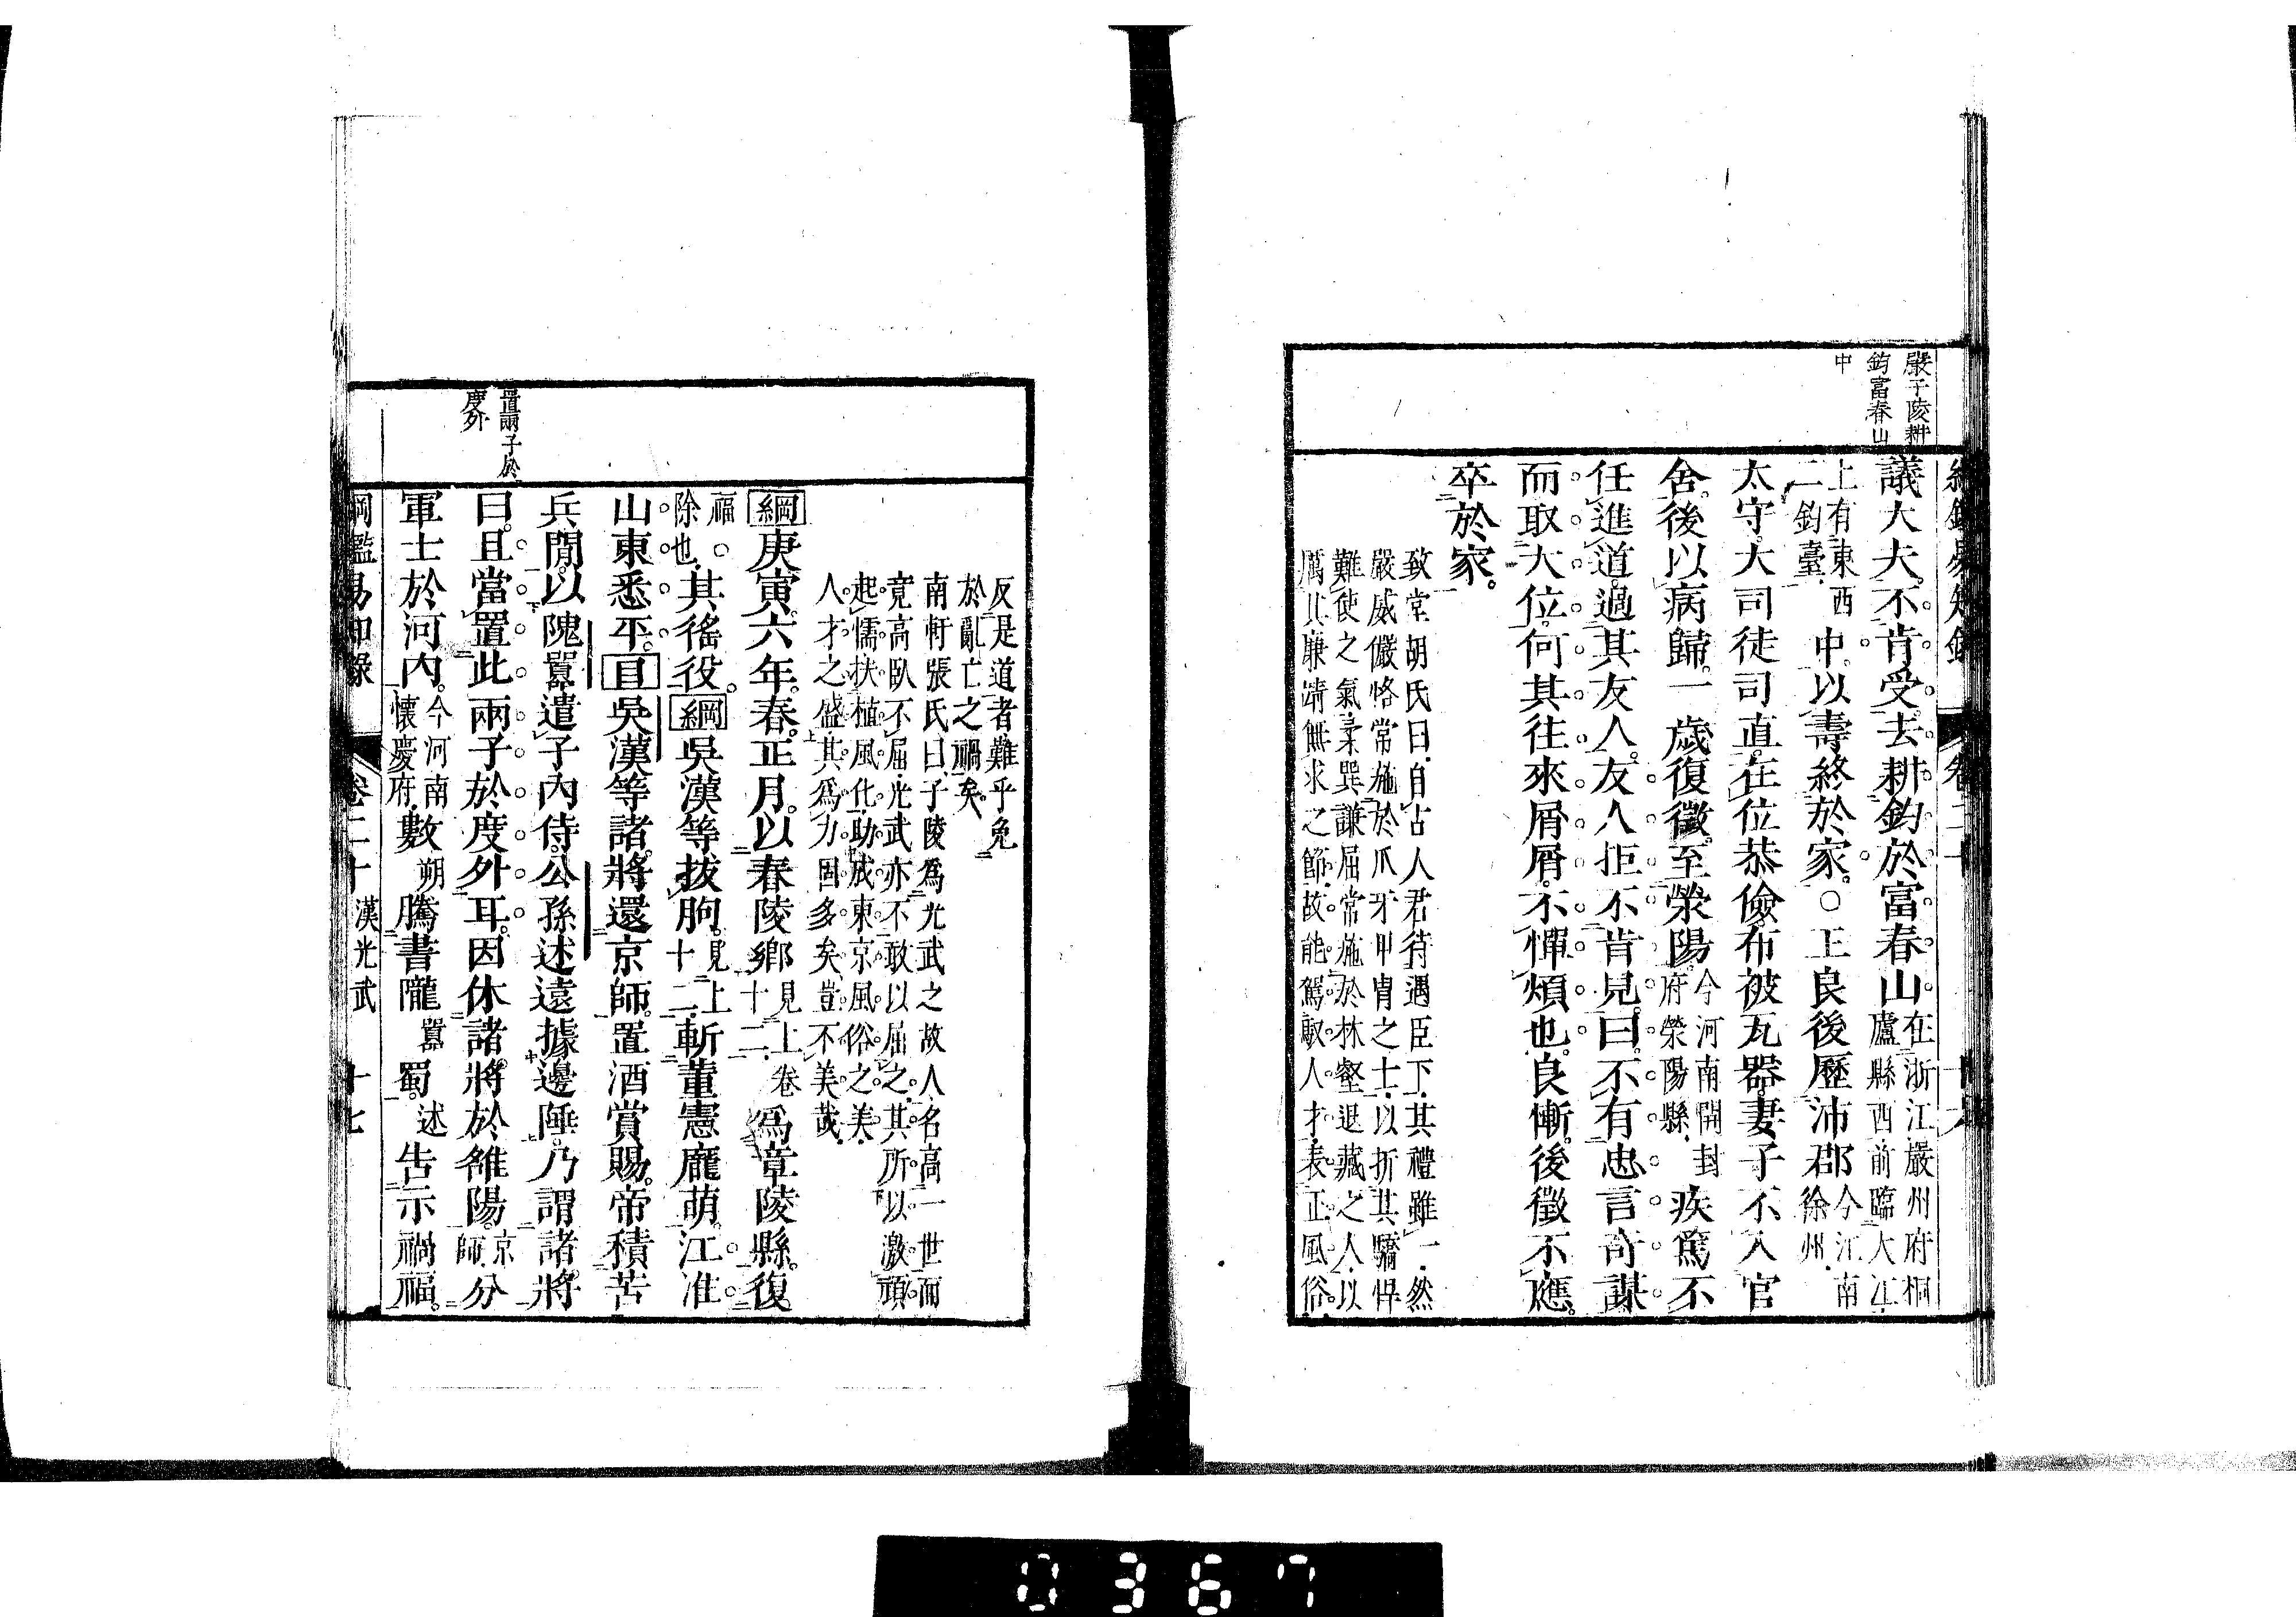 嚴子陵耕
鈞富春山
中
議大夫。不肯受。去耕釣於富春山。在浙江嚴州府桐
廬縣西前臨大江
上有東西
二釣臺。中。以壽終於家。○王良後歷沛郡今江南
徐州
太守。大司徒司直。在位恭儉。布被瓦器。妻子不入官
舍。後以病歸。一歲復徵。至滎陽。今河南開封
府滎陽縣疾篤不
任進道。過其友人。友人拒不肯見。曰。不有忠言奇謀
而取大位。何其往來屑屑。不憚煩也。良慚。後徵不應。
卒於家。
致堂胡氏曰。自古人君待遇臣下。其禮雖一。然
嚴威儼恪常施於爪牙甲冑之士。以折其驕悍
難使之氣。柔巽謙屈常施於林壑退藏之人。以
厲其廉靖無求之節。故能駕馭人才。表正風俗。
卷二十
反是道者難乎免
於亂亡之禍矣。
南軒張氏曰。子陵爲光武之故人。名高一世。而
竟高臥不屈。光武亦不敢以屈之。其所以激頑
起懦。扶植風化。助成東京風俗之美。
人才之盛。其爲力固多矣。豈不美哉。
綱庚寅。六年。春。正月。以舂陵鄉見上卷
十二爲章陵縣。復
福。○
除也其徭役。綱吳漢等拔朐。見上
十二斬董憲龐萌。江淮
山東悉平。目吳漢等諸將還京師。置酒賞賜。帝積苦
兵閒。以隗囂遣子內侍。公孫述遠據邊陲。乃謂諸將
曰。且當置此兩子於度外耳。因休諸將於雒陽。京
師分
軍士於河內。今河南
懷慶府數朔騰書隴囂蜀。述告示禍福。
置兩子於
度外
綱鑑易知錄
卷二十 漢光武 十七
0367